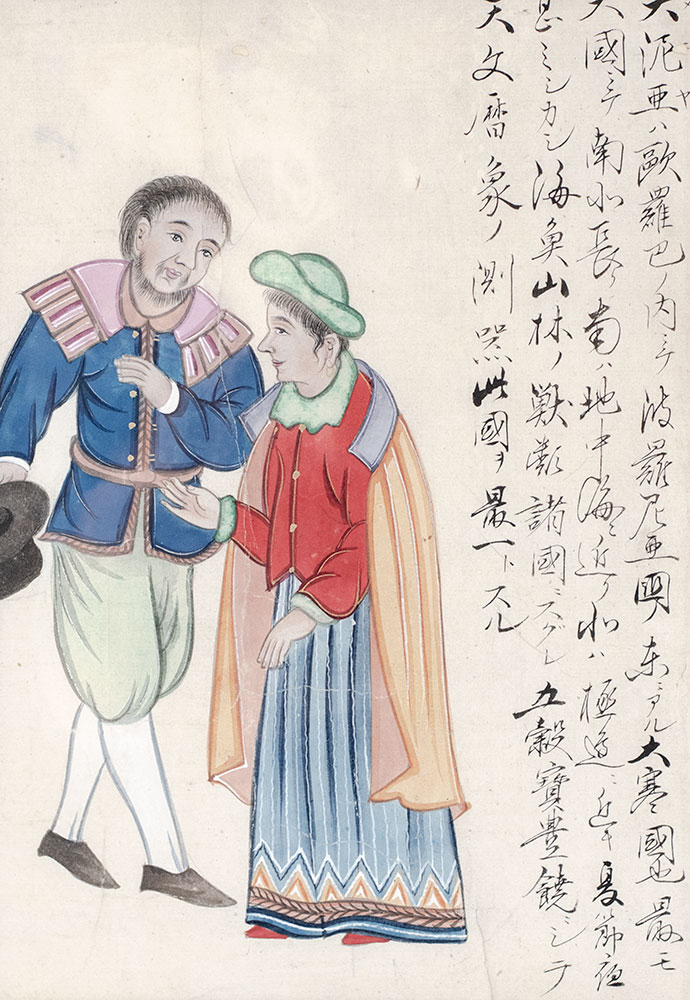 大泥亜ハ歐羅巴ノ内ニテ波羅尼亜國ノ東ニアル大寒國也最モ
大國ニテ南北長ク南ハ地中海ニ近ク北ハ極邊ニ近キ夏節夜
甚ミシカシ海魚山林ノ獣類諸國ニスグレ五穀寶豊饒ニシテ
天文暦象ノ測器此國ヲ最一トスル